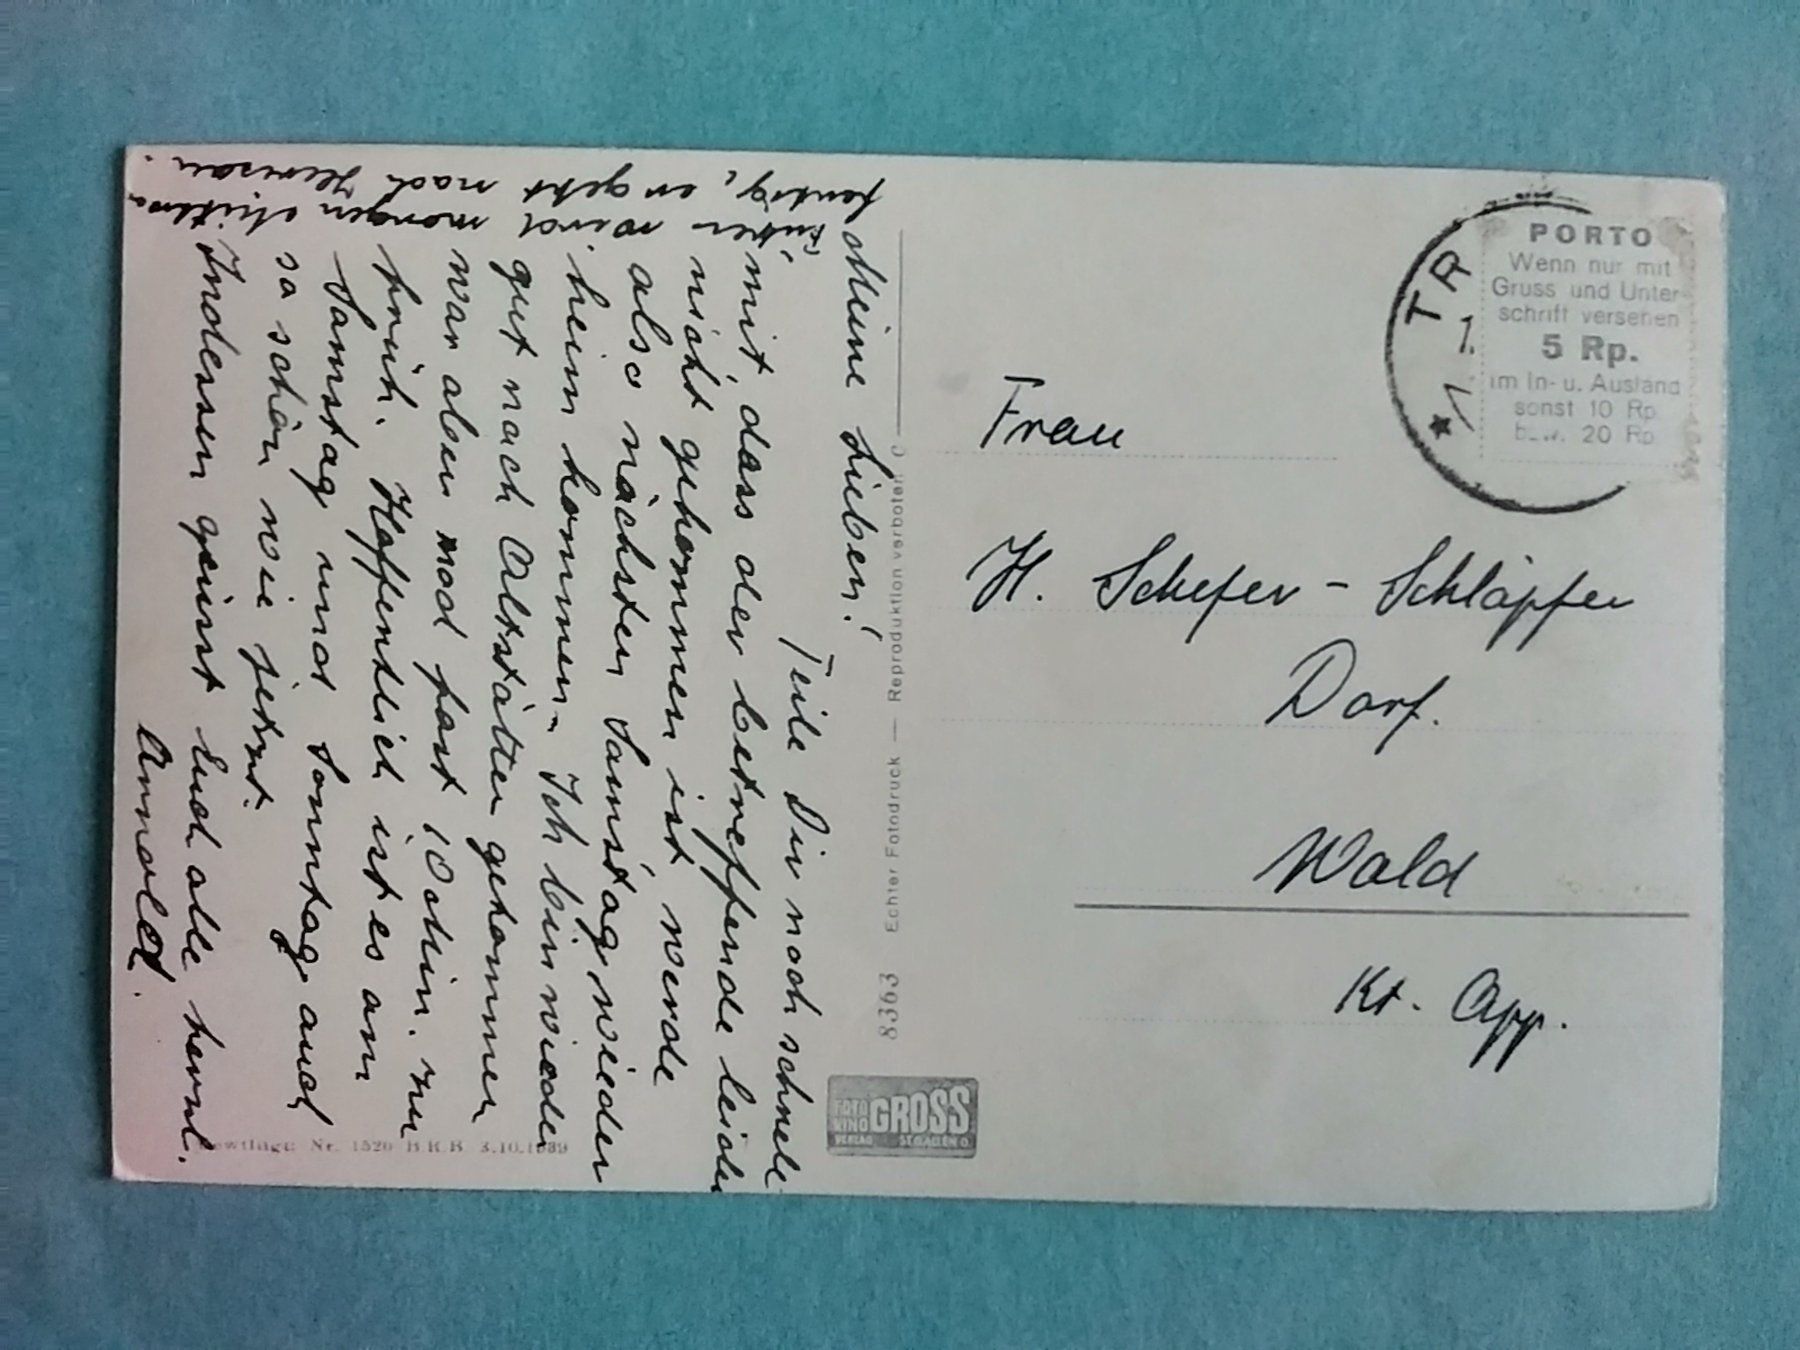 Meine Lieben!
Teile Dir noch schnell
mit, dass der betreffende leider
nicht gekommen ist werde
also nächsten Samstag wieder
heim kommen. Ich bin wieder
gut nach Altstätten gekommen
war aber noch fast 10 Min. zu
früh. Hoffentlich ist es am
Samstag und Sonntag auch
so schön wie jetzt.
Indessen grüsst Euch alle herzl.
Arnold.
wird morgen
fertig, er geht nach Herisau.
Echter Fotodruck — Reproduktion verboten
8363
FOTO
KINO
GROSS
VERLAG ST. GALLEN O.
Nr. 1520 B.R.B. 3.10.1939
PORTO
Wenn nur mit
Gruss und Unter-
schrift versehen
5 Rp.
im In- u. Ausland
sonst 10 Rp.
bzw. 20 Rp.
TR
Frau
H. Schefer-Schläpfer
Dorf.
Wald
Kt. App.